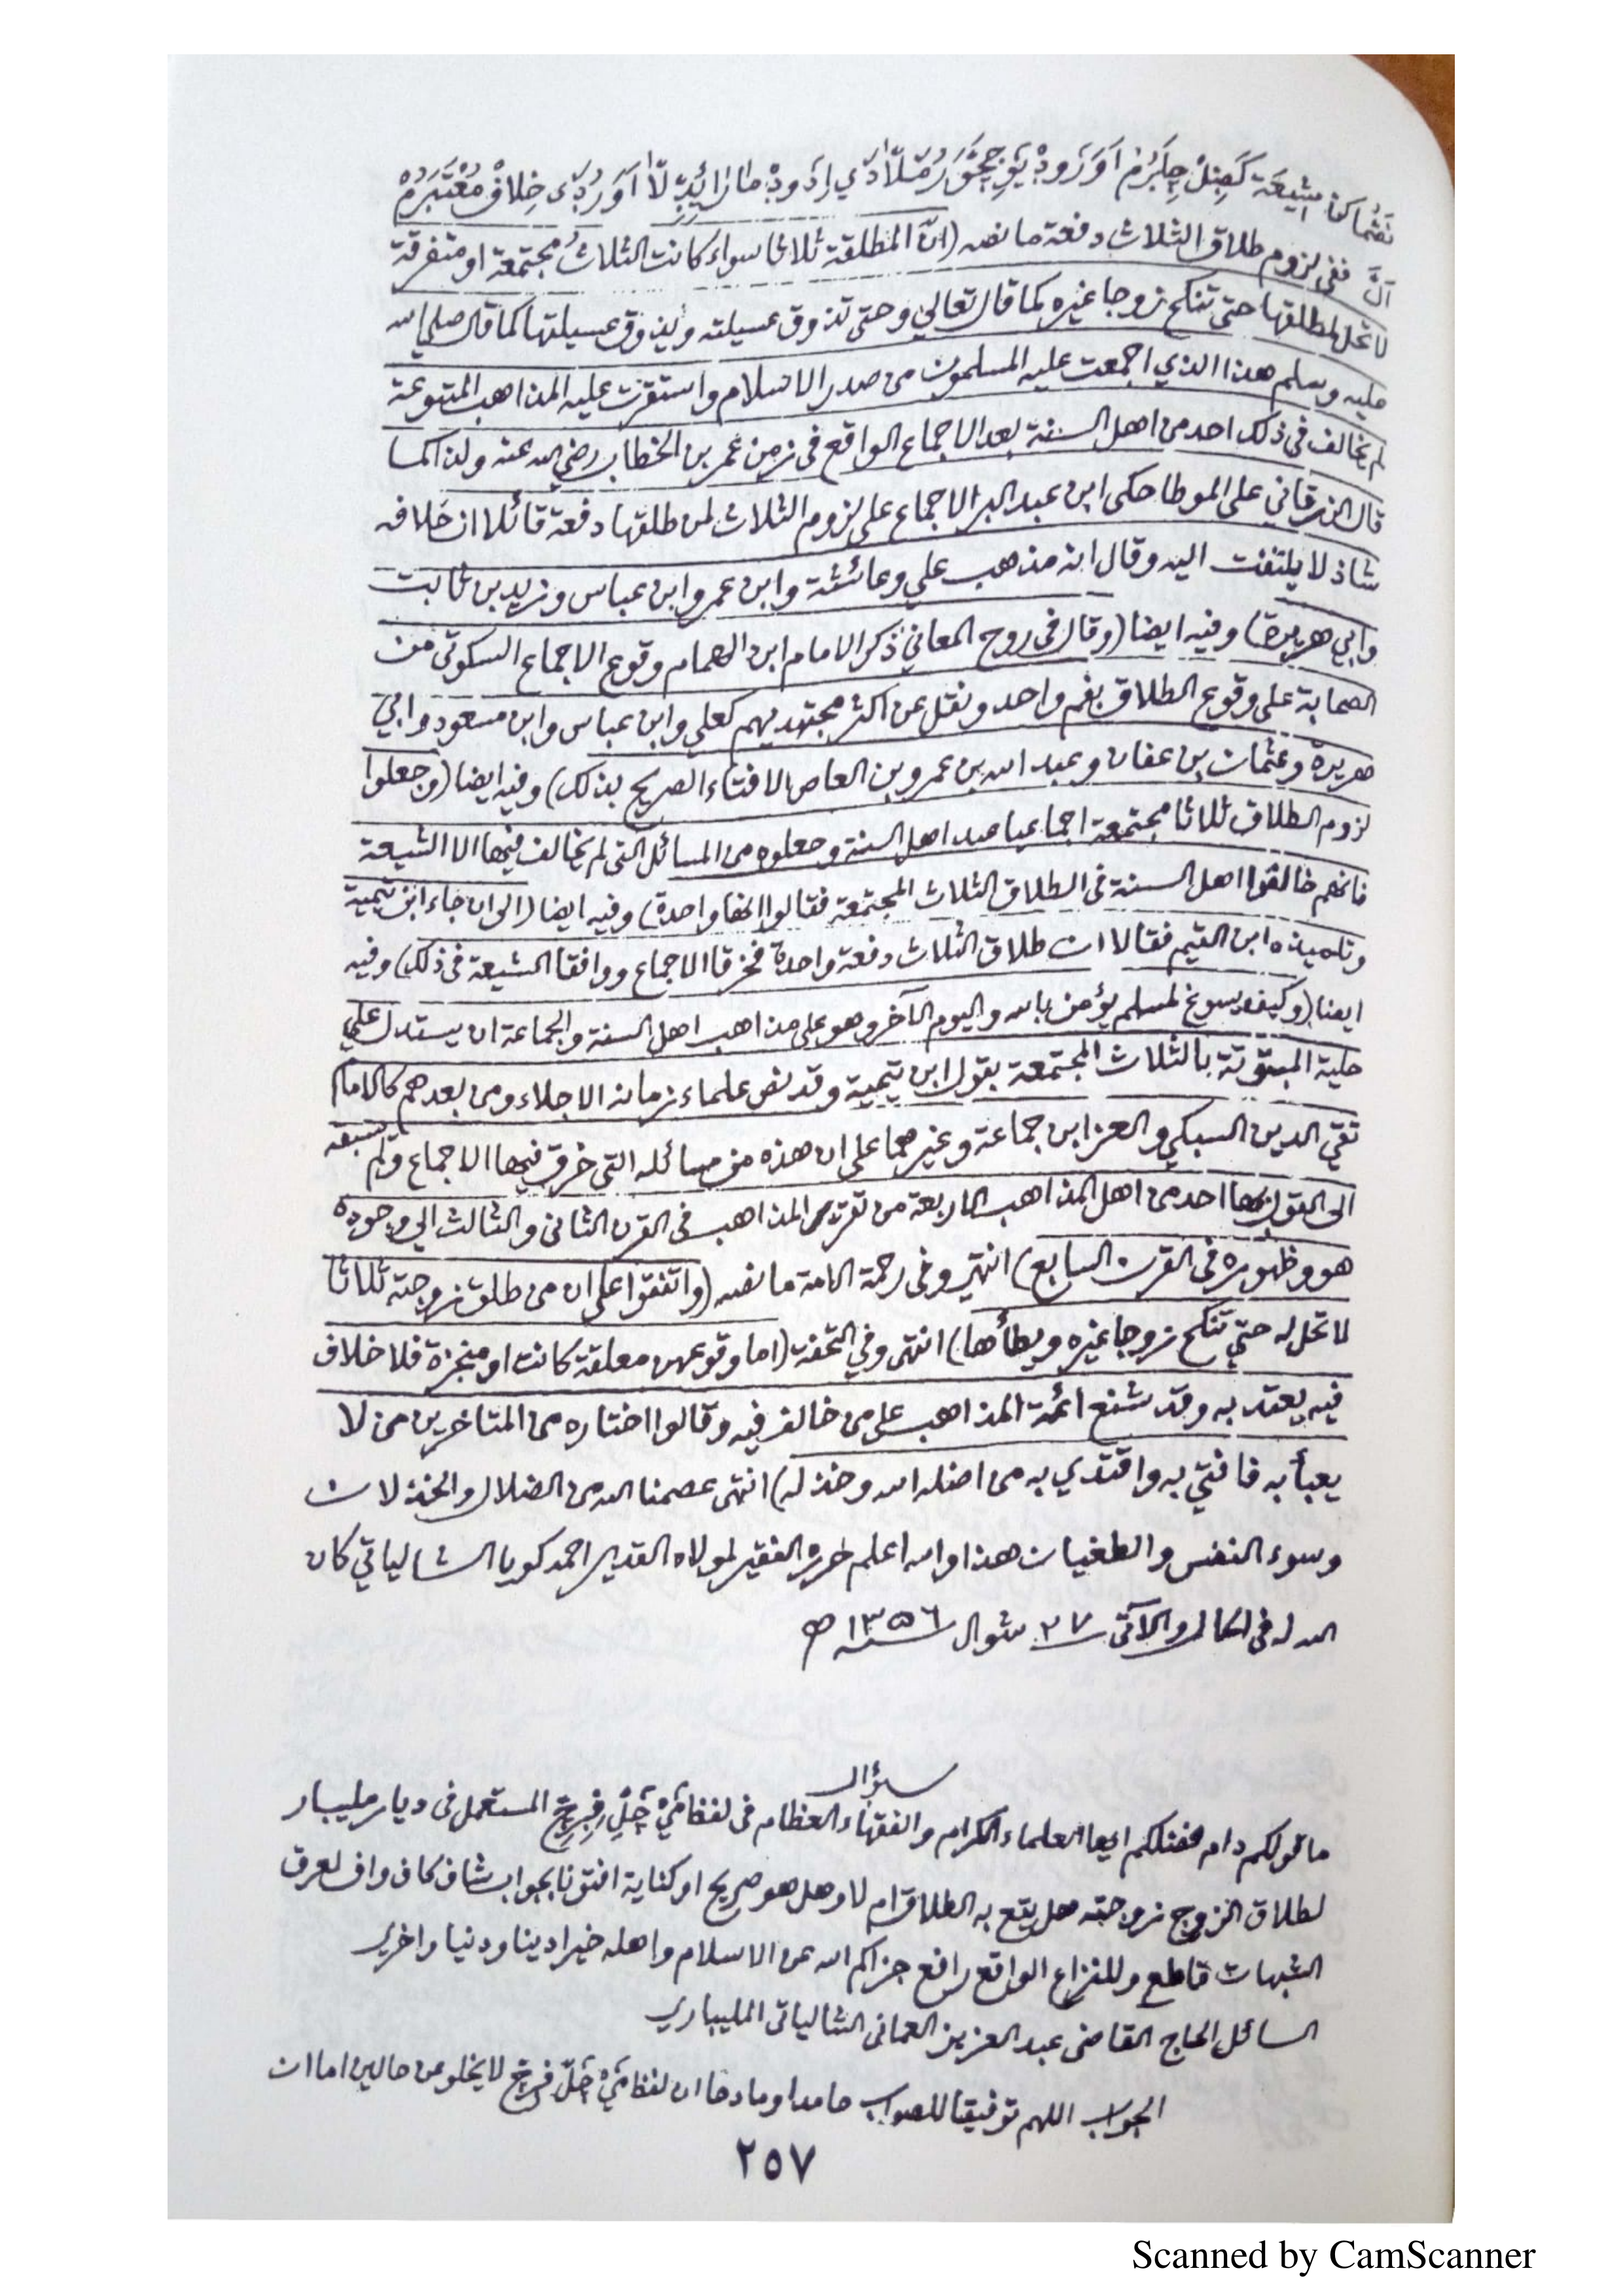 شيعة خلاف معتبرم
ففي لزوم طلاق الثلاث دفعة ما نصه (ان المطلقة ثلاثا سواء كانت الثلاث مجتمعة او متفرقة
لا تحل لمطلقها حتى تنكح زوجا غيره كما قال تعالى وحتى تذوق عسيلته ويذوق عسيلتها كما قال صلى الله
عليه وسلم هذا الذي اجمعت عليه المسلمون من صدر الاسلام واستقرت عليه المذاهب المتبوعة
لم يخالف في ذلك احد من اهل السنة بعد الاجماع الواقع في زمن عمر بن الخطاب رضي الله عنه ولذا كما
قال الزرقاني على الموطا حكى ابن عبد البر الاجماع على لزوم الثلاث لمن طلقها دفعة قائلا ان خلافه
شاذ لا يلتفت اليه وقال انه مذهب علي وعائشة وابن عمر وابن عباس وزيد بن ثابت
وابي هريرة) وفيه ايضا (وقال في روح المعاني ذكر الامام ابن الهمام وقوع الاجماع السكوتي من
الصحابة على وقوع الطلاق بفم واحد ونقل عن اكثر مجتهديهم كعلي وابن عباس وابن مسعود وابي
هريرة وعثمان بن عفان وعبد الله بن عمرو بن العاص الافتاء الصريح بذلك) وفيه ايضا (وجعلوا
لزوم الطلاق ثلاثا مجتمعة اجماعيا عند اهل السنة وجعلوه من المسائل التي لم يخالف فيها الا الشيعة
فانهم خالفوا اهل السنة في الطلاق الثلاث المجتمعة فقالوا انها واحدة) وفيه ايضا (الى ان جاء ابن تيمية
وتلميذه ابن القيم فقالا ان طلاق الثلاث دفعة واحدة فخرقا الاجماع ووافقا الشيعة في ذلك) وفيه
ايضا (وكيف يسوغ لمسلم يؤمن بالله واليوم الآخر وهو على مذاهب اهل السنة والجماعة ان يستدل على
حلية المبتوتة بالثلاث المجتمعة بقول ابن تيمية وقد نص علماء زمانه الاجلاء ومن بعدهم كالامام
تقي الدين السبكي والعز ابن جماعة وغيرهما على ان هذه من مسائله التي خرق فيها الاجماع ولم يسبقه
الى القول بها احد من اهل المذاهب الاربعة من تقرر المذاهب في القرن الثاني والثالث الى وجوده
هو وظهوره في القرن السابع) انتهى وفي رحمة الامة ما نصه (واتفقوا على ان من طلق زوجته ثلاثا
لا تحل له حتى تنكح زوجا غيره ويطأها) انتهى وفي التحفة (اما وقوعهن معلقة كانت او منجزة فلا خلاف
فيه يعتد به وقد شنع ائمة المذاهب على من خالف فيه وقالوا اختاره من المتاخرين من لا
يعبأ به فافتى به واقتدي به من اضله الله وخذله) انتهى عصمنا الله من الضلال والخذلان
وسوء النفس والطغيان هذا والله اعلم حرره الفقير لمولاه القدير احمد كويا الشالياتي كان
الله له في الحال والآتي ٢٧ شوال سنة ١٣٥٦ ه
سؤال
ما قولكم دام فضلكم ايها العلماء الكرام والفقهاء العظام في لفظ المستعمل في ديار مليبار
لطلاق الزوج زوجته هل يقع به الطلاق ام لا وهل هو صريح او كناية افتونا بجواب شاف كاف واف لعرق
الشبهات قاطع وللنزاع الواقع رافع جزاكم الله عن الاسلام واهله خيرا دينا ودنيا واخرى
السائل الحاج القاضي عبد العزيز العماني الشالياتي المليباري
الجواب اللهم توفيقا للصواب حامدا ومادحا ان لفظ لا يخلو من حالين اما ان
٢٥٧
Scanned by CamScanner